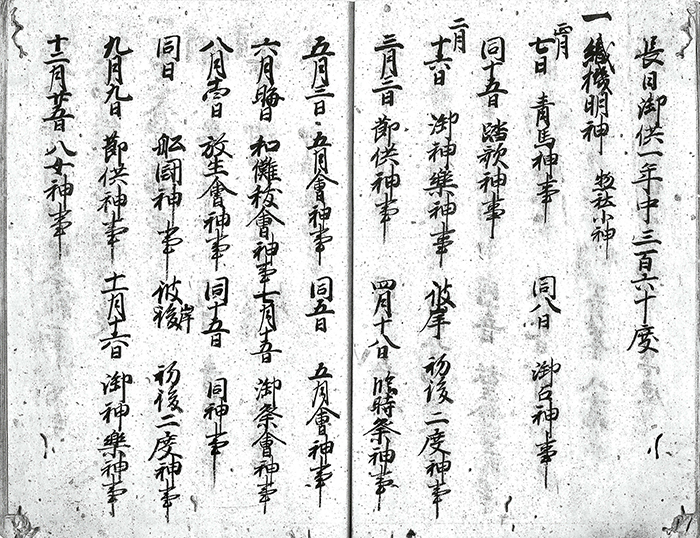 長日御供一年中三百六十度
一織機明神 惣社小神
正月
七日 青馬神事 同八日 御占神事
同十五日踏歌神事
二月
十六日 御神樂神事 彼岸 初後二度神事
三月三日節供神事 四月十八日臨時祭神事
五月三日五月會神事 同五日 五月會神事
六月晦日 和儺祓會神事七月十五日 御祭會神事
八月一日 放生會神事 同十五日 同神事
同日 船國神事 彼後岸 初後二度神事
九月九日 節供神事 十一月十六日 御神樂神事
十二月廿五日 八女神事